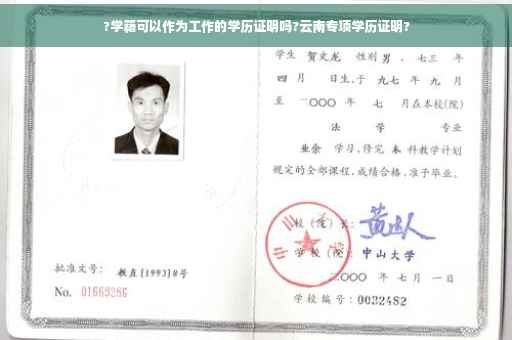 ?学籍可以作为工作的学历证明吗?云南专项学历证明?
学生 贺文龙 性别 男 、七三 年
四 月 日生,于 九七 年 九 月
至 二〇〇〇 年 七 月在本校(院)
法 学 专业
业余 学习,修完 本 科教学计划
规定的全部课程,成绩合格,准予毕业。
校 (院) 长:
学 校 (院): 中山大学
批准文号: 教直[1993]8号
二〇〇〇 年 七 月 一 日
No. 01663286
学校编号:0032482